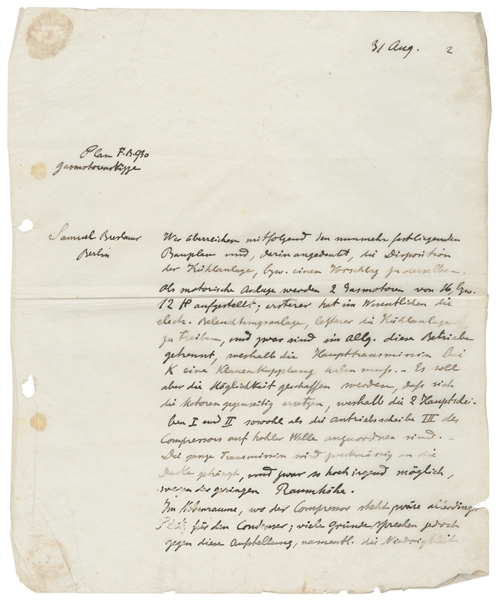 31 Aug. 2
Plan F.B. 930
Gasmotorenskizze
Samuel
Berlin
Wir überreichen mitfolgend den nunmehr festliegenden
Bauplan und, darin angedeutet, die Disposition
der Kühlanlage, bzw. einen Vorschlag zu derselben.
Als motorische Anlage werden 2 Gasmotoren von 16, bzw.
12 P aufgestellt; ersterer hat im Wesentlichen die
electr. Beleuchtungsanlage, letzterer die Kühlanlage
zu treiben, und zwar sind im allg. diese Betriebe
getrennt, weshalb die Haupttransmission bei
K eine Klauenkupplung haben muss. - Es soll
aber die Möglichkeit geschaffen werden, dass sich
die Motoren gegenseitig ersetzen, weshalb die 2 Hauptschei-
ben I und II sowohl als die Antriebsscheibe VII des
Compressors auf hohler Welle angeordnet sind. -
Die ganze Transmission wird zweckmässig an die
Decke gehängt, und zwar so hoch irgend möglich,
wegen der geringen Raumhöhe.
Im Raume, wo der Compressor steht, wäre allerdings
Platz für den Condenser; viele Gründe sprechen jedoch
gegen diese Aufstellung, namentl. die Niedrigkeit